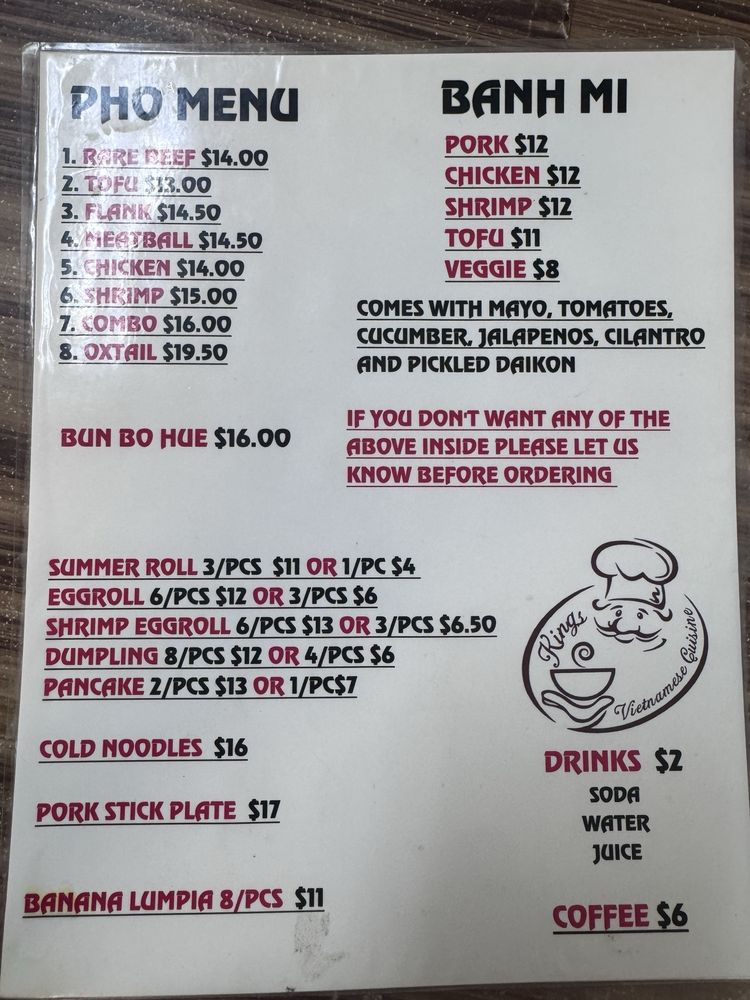 PHO MENU
1. RARE BEEF $14.00
2. TOFU $13.00
3. FLANK $14.50
4. MEATBALL $14.50
5. CHICKEN $14.00
6. SHRIMP $15.00
7. COMBO $16.00
8. OXTAIL $19.50
BUN BO HUE $16.00
BANH MI
PORK $12
CHICKEN $12
SHRIMP $12
TOFU $11
VEGGIE $8
COMES WITH MAYO, TOMATOES,
CUCUMBER, JALAPENOS, CILANTRO
AND PICKLED DAIKON
IF YOU DON'T WANT ANY OF THE
ABOVE INSIDE PLEASE LET US
KNOW BEFORE ORDERING
SUMMER ROLL 3/PCS $11 OR 1/PC $4
EGGROLL 6/PCS $12 OR 3/PCS $6
SHRIMP EGGROLL 6/PCS $13 OR 3/PCS $6.50
DUMPLING 8/PCS $12 OR 4/PCS $6
PANCAKE 2/PCS $13 OR 1/PC$7
COLD NOODLES $16
PORK STICK PLATE $17
BANANA LUMPIA 8/PCS $11
Kings
Vietnamese Cuisine
DRINKS $2
SODA
WATER
JUICE
COFFEE $6